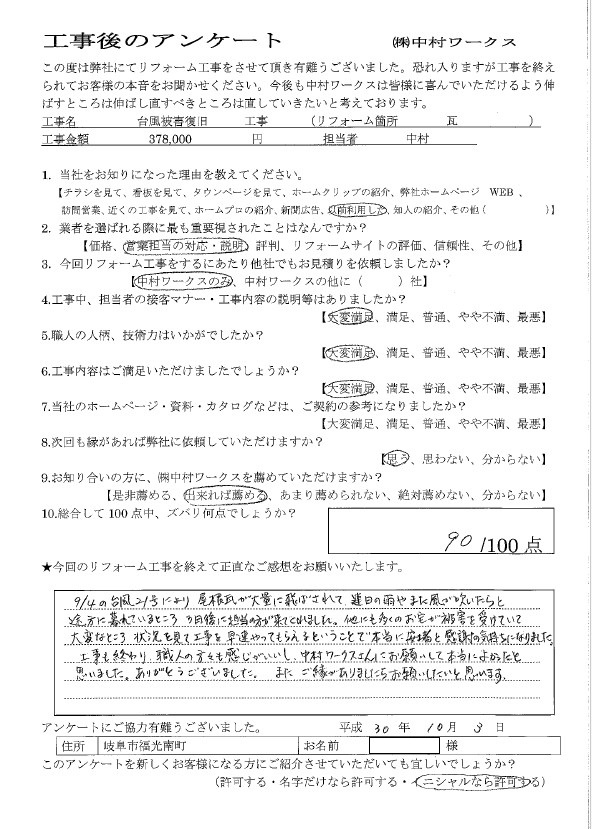 工事後のアンケート ㈱中村ワークス
この度は弊社にてリフォーム工事をさせて頂き有難うございました。恐れ入りますが工事を終え
られてお客様の本音をお聞かせください。今後も中村ワークスは皆様に喜んでいただけるよう伸
ばすところは伸ばし直すべきところは直していきたいと考えております。
工事名 台風被害復旧 工事 (リフォーム箇所 瓦 )
工事金額 378,000 円 担当者 中村
1. 当社をお知りになった理由を教えてください。
【チラシを見て、看板を見て、タウンページを見て、ホームクリップの紹介、弊社ホームページ WEB 、
訪問営業、近くの工事を見て、ホームプロの紹介、新聞広告、以前利用した、知人の紹介、その他( )】
2. 業者を選ばれる際に最も重要視されたことはなんですか?
【価格、営業担当の対応・説明、評判、リフォームサイトの評価、信頼性、その他】
3. 今回リフォーム工事をするにあたり他社でもお見積りを依頼しましたか?
【中村ワークスのみ、中村ワークスの他に ( ) 社】
4.工事中、担当者の接客マナー・工事内容の説明等はありましたか?
【大変満足、満足、普通、やや不満、最悪】
5.職人の人柄、技術力はいかがでしたか?
【大変満足、満足、普通、やや不満、最悪】
6.工事内容はご満足いただけましたでしょうか?
【大変満足、満足、普通、やや不満、最悪】
7.当社のホームページ・資料・カタログなどは、ご契約の参考になりましたか?
【大変満足、満足、普通、やや不満、最悪】
8.次回も縁があれば弊社に依頼していただけますか?
【思う、思わない、分からない】
9.お知り合いの方に、㈱中村ワークスを薦めていただけますか?
【是非薦める、出来れば薦める、あまり薦められない、絶対薦めない、分からない】
10.総合して 100 点中、ズバリ何点でしょうか?
90 /100 点
★今回のリフォーム工事を終えて正直なご感想をお願いいたします。
9/4の台風21号により 屋根瓦が大量に飛ばされて、連日の雨やまた風が吹いたらと
途方に暮れているところ 3日後に担当の方が来てくれました。他にも多くのお宅が被害を受けていて
大変なところ 状況を見て工事を早速やってもらえるということで本当に安堵と感謝の気持ちになりました。
工事も終わり 職人の方々も感じがいいし、中村ワークスさんにお願いして本当によかったと
思いました。ありがとうございました。 また ご縁がありましたらお願いしたいと思います。
アンケートにご協力有難うございました。 平成 30 年 10 月 3 日
住所 岐阜市福光南町 お名前 様
このアンケートを新しくお客様になる方にご紹介させていただいても宜しいでしょうか?
(許可する・名字だけなら許可する・イニシャルなら許可する)